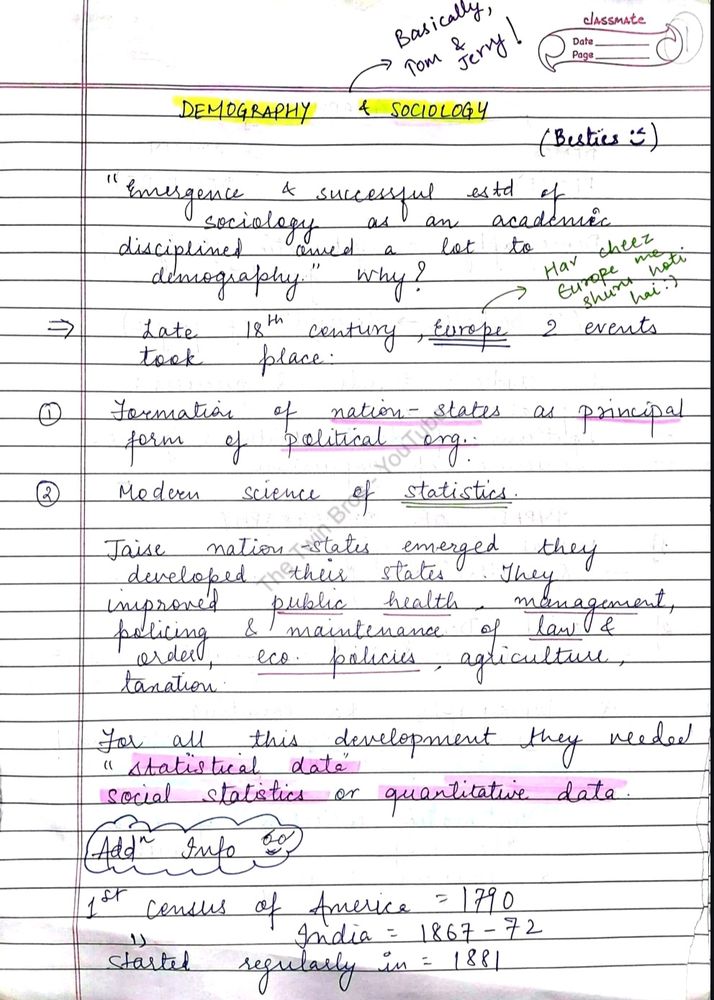 Basically,
Tom &
Jerry!
classmate
Date
Page
DEMOGRAPHY & SOCIOLOGY
(Besties :))
"Emergence & successful estd of
sociology as an academic
disciplined owed a lot to
demography." Why?
Har cheez
Europe me
shuru hoti
hai :)
⇒ Late 18th century, Europe 2 events
took place:
① Formation of nation-states as principal
form of political org.
② Modern science of statistics.
Jaise nation-states emerged they
developed their states. They
improved public health, management,
policing & maintenance of law &
order, eco. policies, agriculture,
taxation.
For all this development they needed
"statistical data"
social statistics or quantitative data.
Addn Info
1st census of America = 1790
" India = 1867-72
started regularly in = 1881
The Twin Bros - YouTube